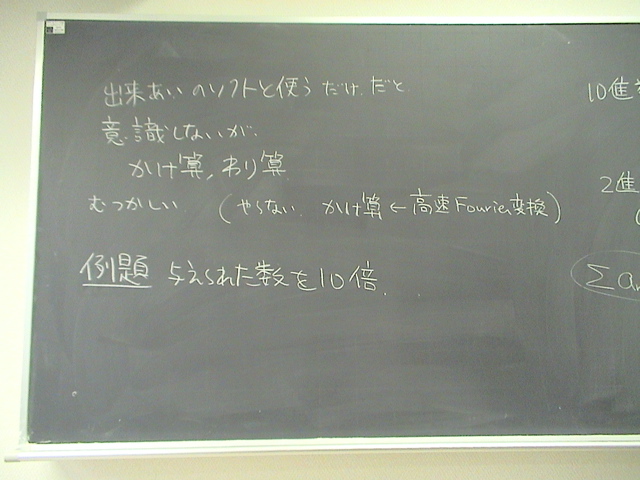 出来あいのソフトを使うだけだと
意識しないが、
かけ算、わり算
むつかしい (やらない かけ算←高速Fourier変換)
例題 与えられた数を10倍.
10進
2進
Σan